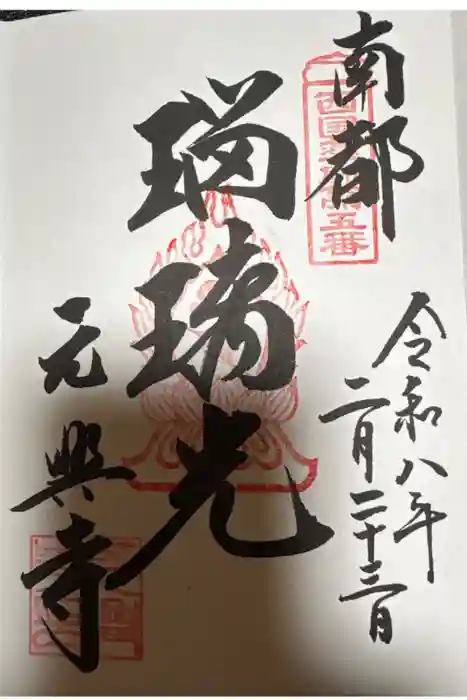 南都
令和八年
二月二十三日
瑠璃光
元興寺